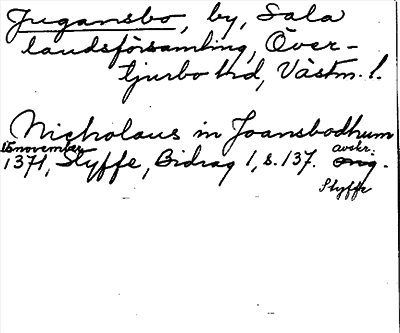 Jugansbo, by, Sala
landsförsamling, Över-
tjurbo hd, Västm. l.
Nicholaus in Joansbodhum
15 november
1371, Styffe, Bidrag 1, s. 137. avskr.
orig.
Styffe